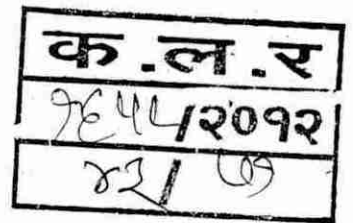 क.ल.र
१६५५/२०१२
४२/७१